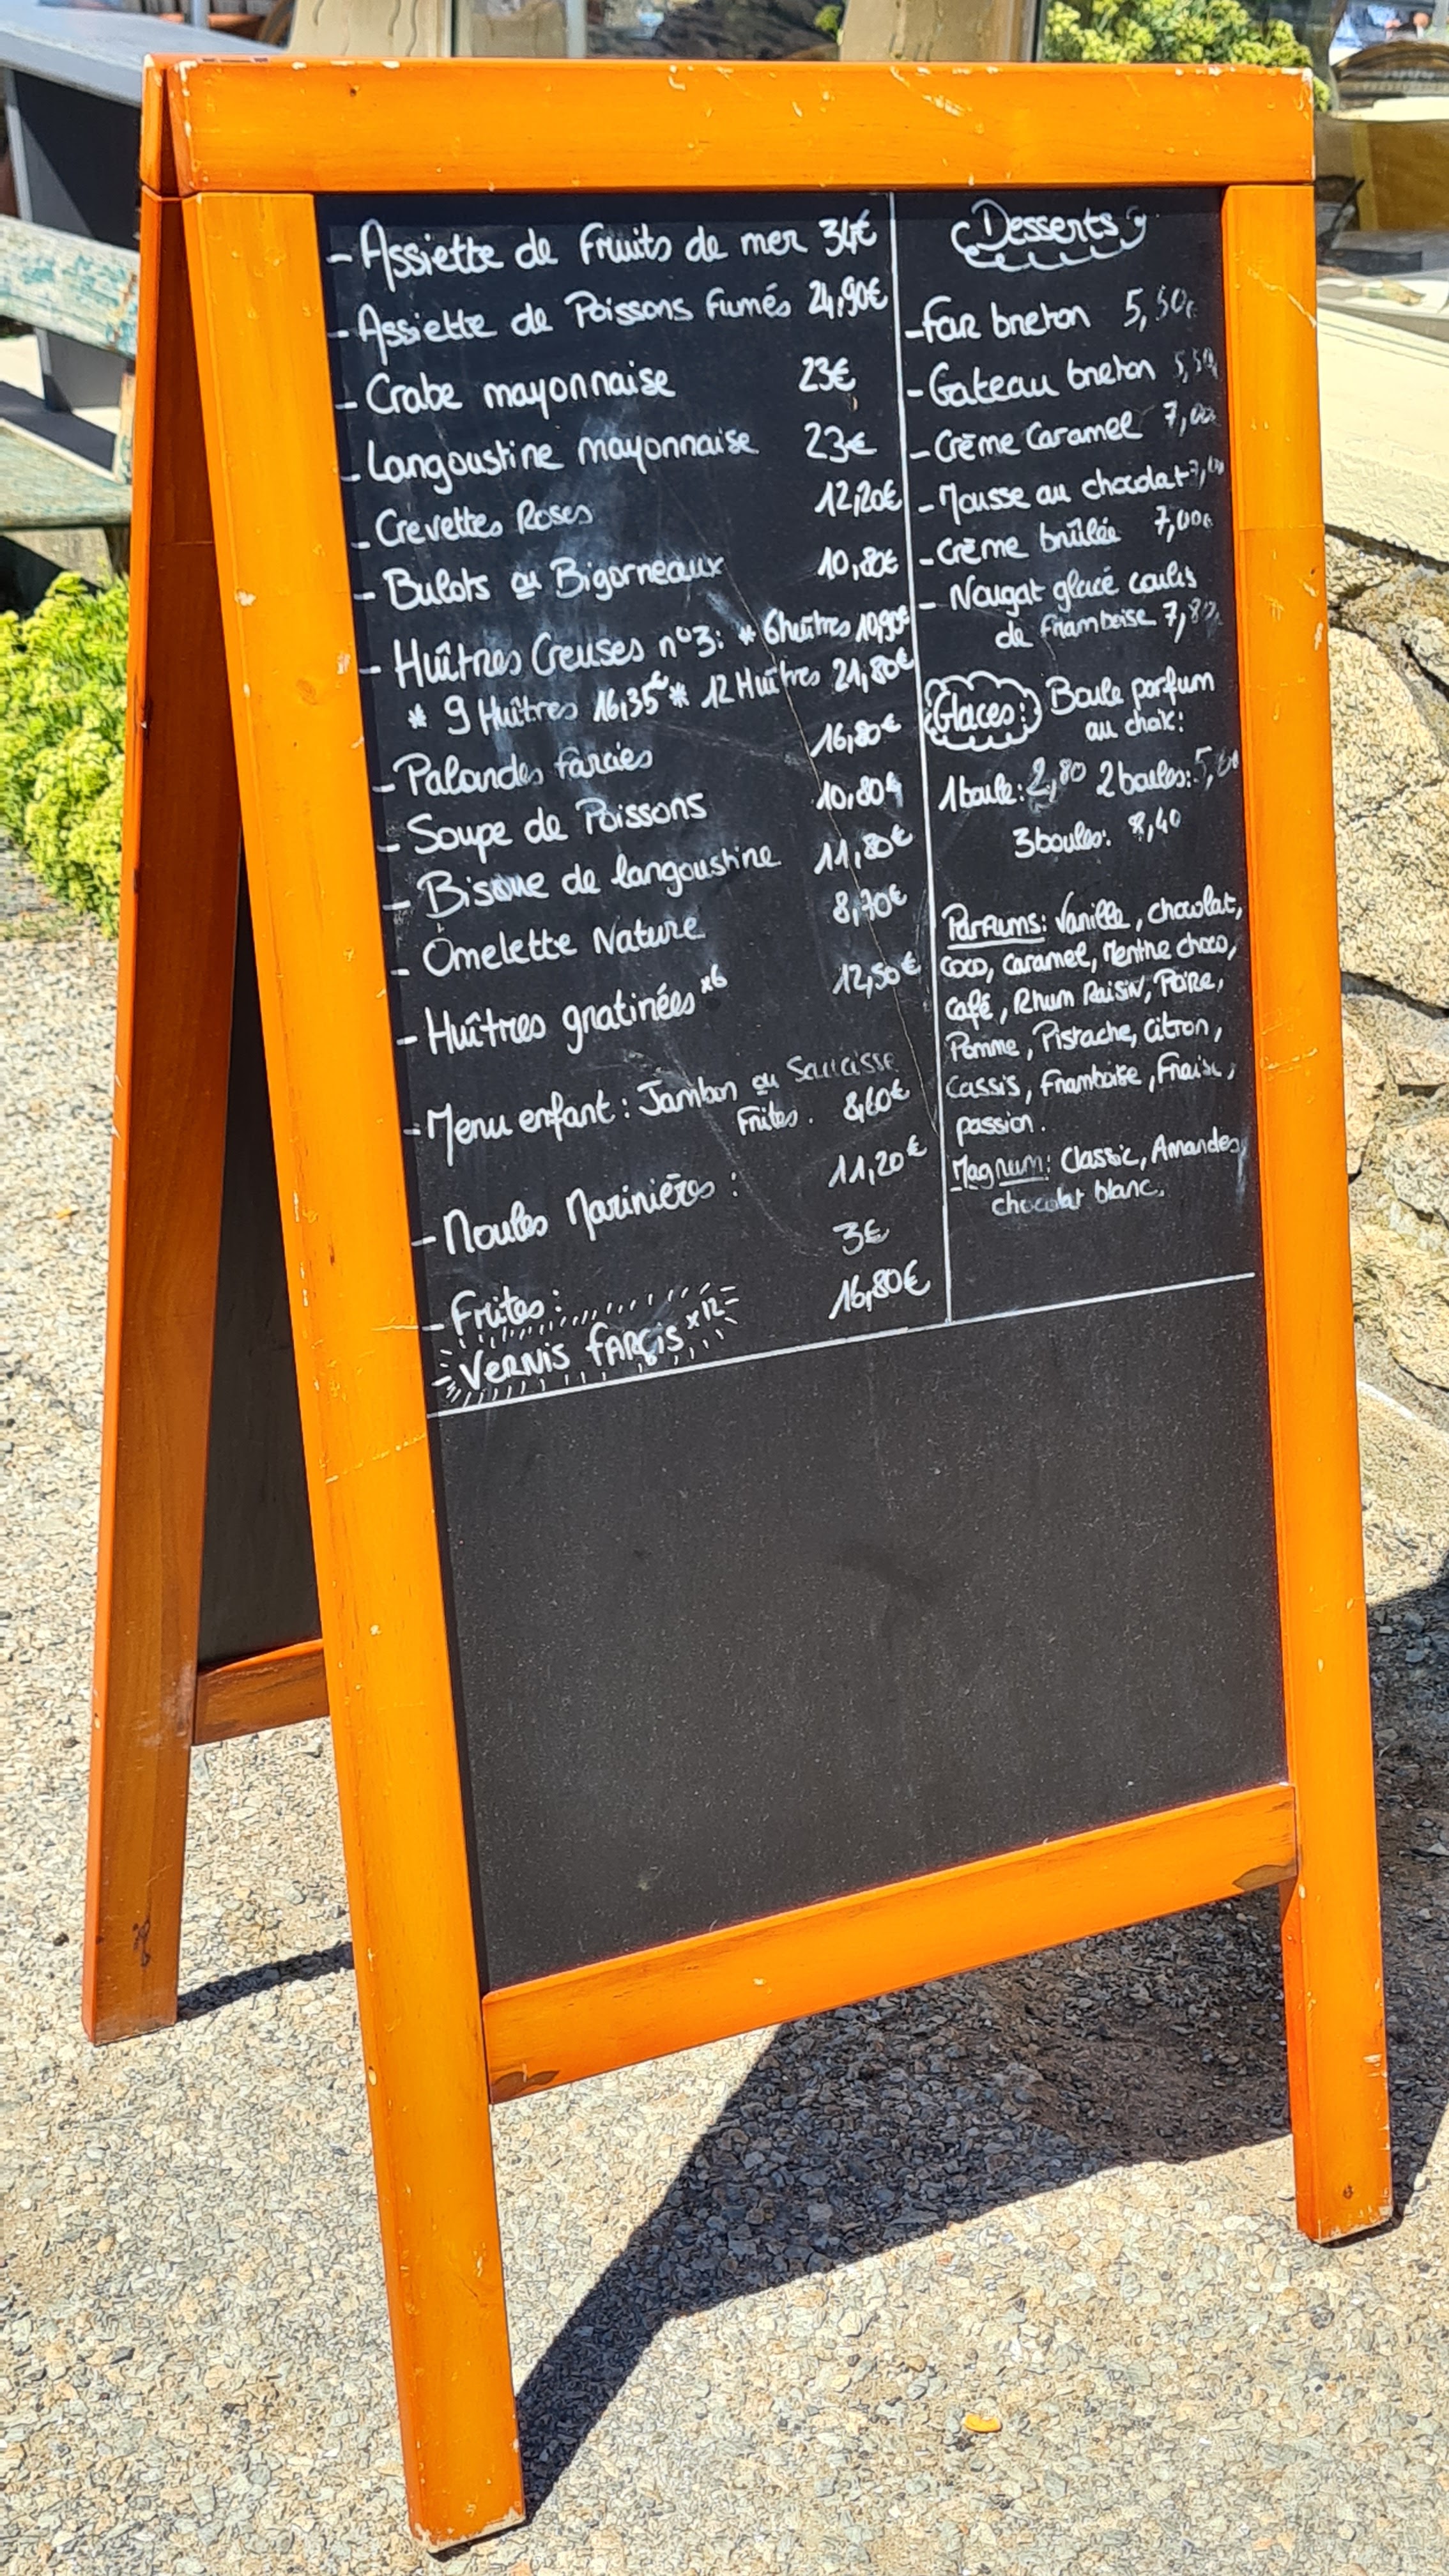 - Assiette de fruits de mer 34€
- Assiette de Poissons fumés 24,90€
- Crabe mayonnaise 23€
- Langoustine mayonnaise 23€
- Crevettes Roses 12,20€
- Bulots ou Bigorneaux 10,80€
- Huîtres Creuses n°3: * 6 huîtres 10,90€
* 9 Huîtres 16,35€ * 12 Huîtres 21,80€
- Palourdes farcies 16,80€
- Soupe de Poissons 10,80€
- Bisque de langoustine 11,80€
- Omelette Nature 8,70€
- Huîtres gratinées x6 12,50€
- Menu enfant: Jambon ou Saucisse
Frites. 8,60€
- Moules Marinières: 11,20€
- Frites: 3€
- VERNIS FARCIS x12 16,80€
Desserts
- Far breton 5,50€
- Gateau breton 5,50
- Crème Caramel 7,00
- Mousse au chocolat 7,00
- Crème brûlée 7,00€
- Nougat glacé coulis
de framboise 7,80
Glaces: Boule parfum
au choix:
1 boule: 2,80 2 boules: 5,60
3 boules: 8,40
Parfums: Vanille, chocolat,
coco, caramel, Menthe choco,
café, Rhum Raisin, Poire,
Pomme, Pistache, citron,
cassis, framboise, Fraise,
passion.
Magnum: Classic, Amandes,
chocolat blanc.